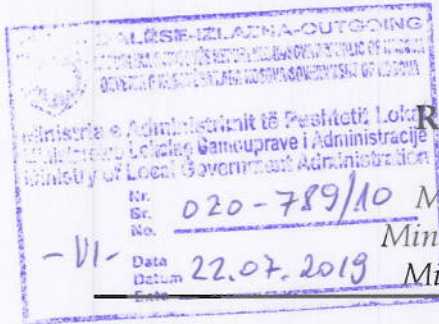 DALËSE-IZLAZNA-OUTGOING
Ministria e Administrimit të Pushtetit Lokal
Ministarstvo Lokalne Samouprave i Administracije
Ministry of Local Government Administration
R
Nr.
Br.
No. 020-789/10
M
Min
-VI-
Data
Datum 22.07.2019
Date
Mi